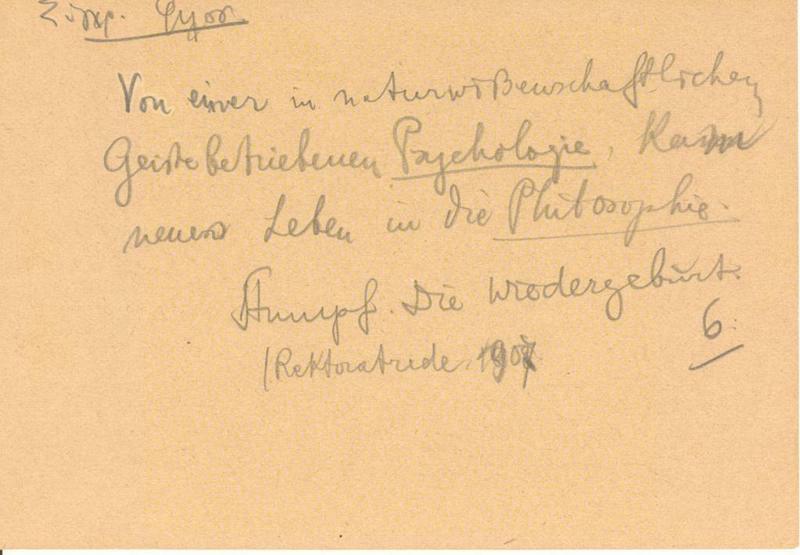 Von einer in naturwißenschaftlichen
Geiste betriebenen Psychologie, kam
neues Leben in die Philosophie.
Stumpf. Die Wiedergeburt.
6.
(Rektoratrede. 1907